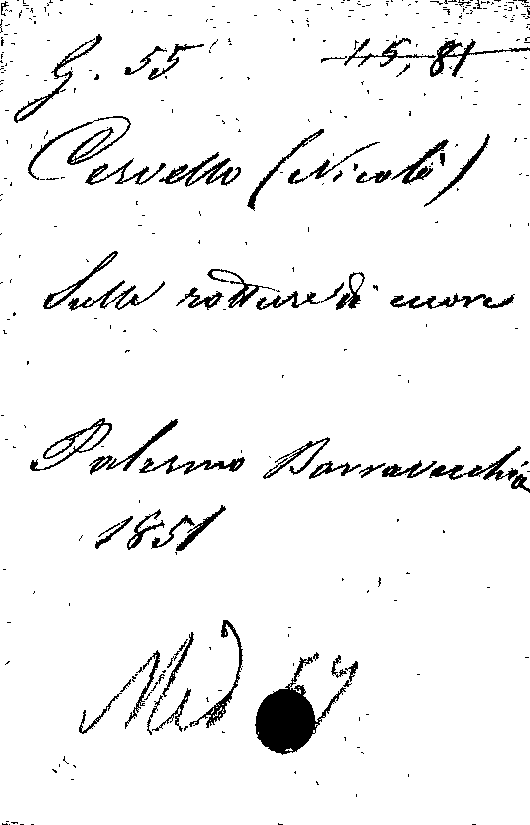 G. 55 1,5,81
Cervello (Nicolò)
Sulle rotture di cuore
Palermo Barravecchia
1851
Med 57